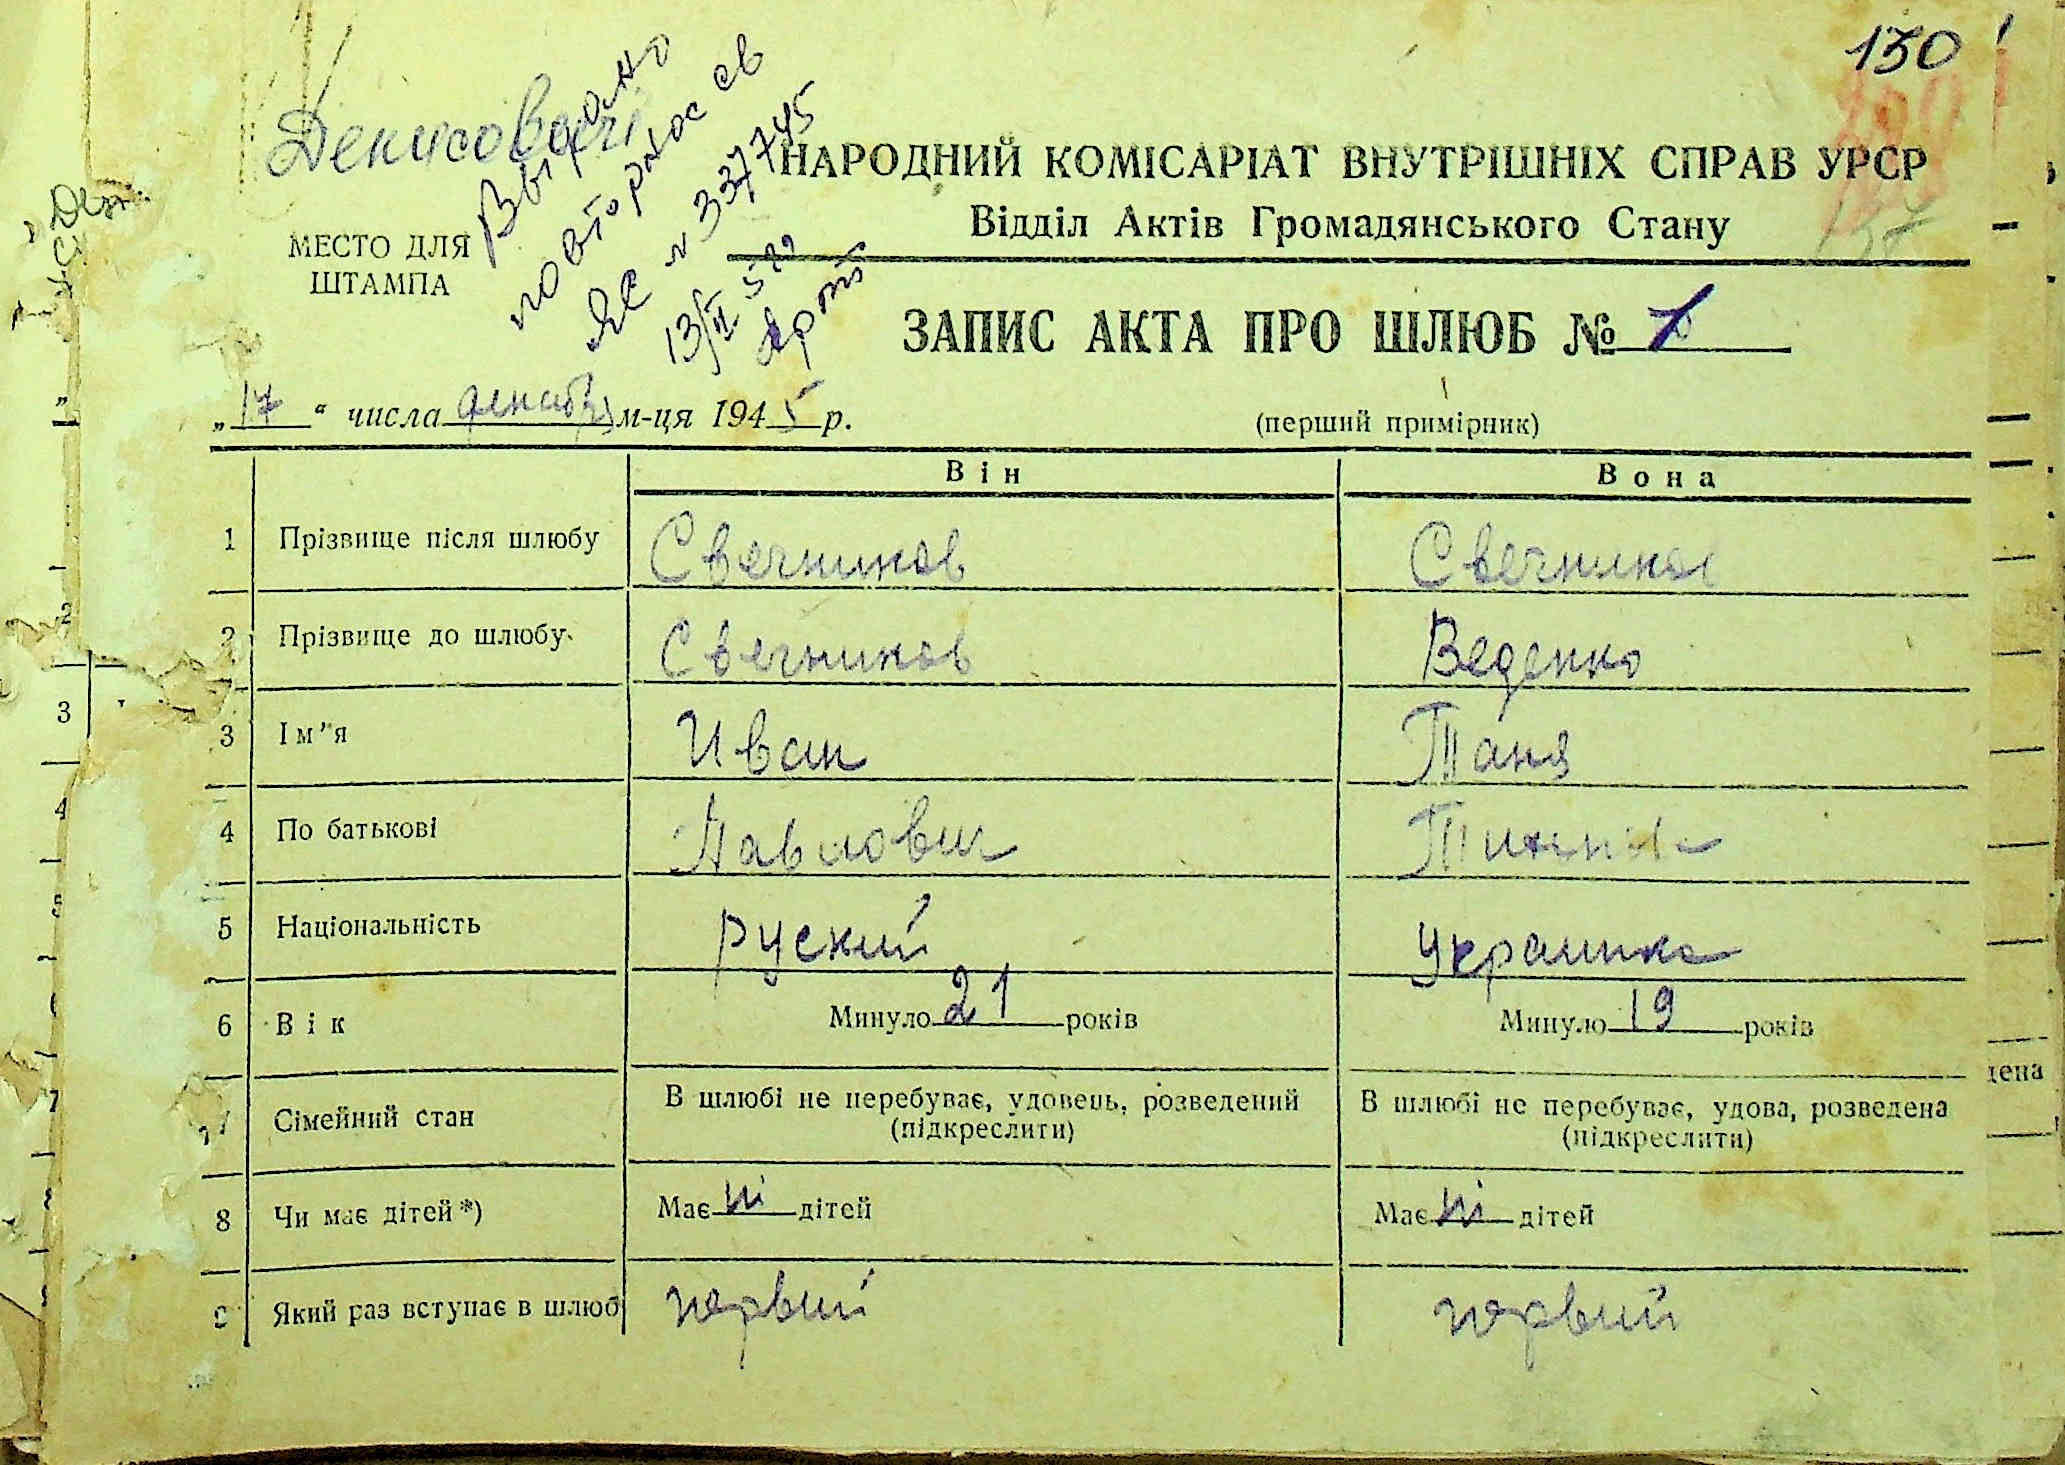 130
НАРОДНИЙ КОМІСАРІАТ ВНУТРІШНІХ СПРАВ УРСР
Відділ Актів Громадянського Стану
137
МЕСТО ДЛЯ
ШТАМПА
Выдано
повторное св
ЯС N 337745
13/II 52
ЗАПИС АКТА ПРО ШЛЮБ №
„17“ числа декабря м-ця 1945 р.
(перший примірник)
Він Вона
1 Прізвище після шлюбу Свечников Свечников
2 Прізвище до шлюбу Свечников Веденко
3 Ім'я Иван Таня
4 По батькові Павлович
5 Національність руский украинка
6 Вік Минуло 21 років Минуло 19 років
7 Сімейний стан В шлюбі не перебуває, удовець, розведений (підкреслити) В шлюбі не перебуває, удова, розведена (підкреслити)
8 Чи має дітей*) Має ні дітей Має ні дітей
9 Який раз вступає в шлюб первий первий